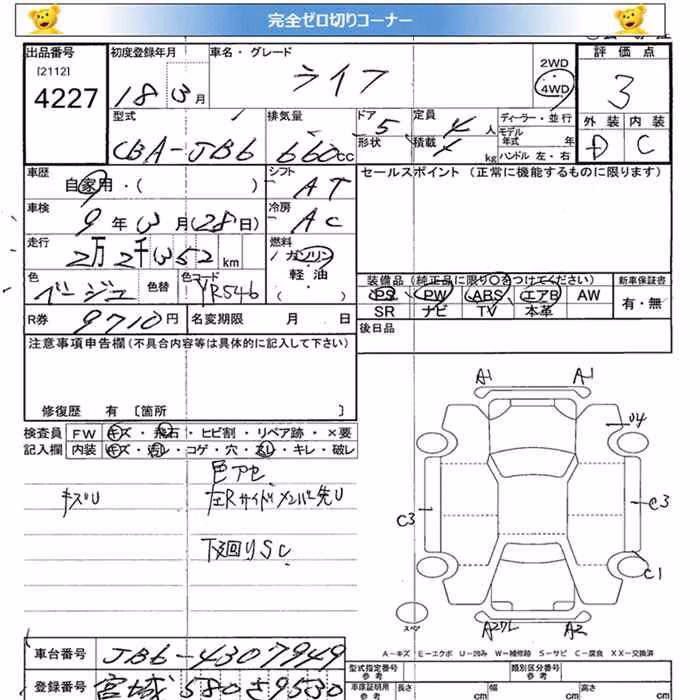 完全ゼロ切りコーナー
出品番号 初度登録年月 車名・グレード 2WD 評価点
[2112] ライフ 4WD 3
4227 18 3月
型式 排気量 ドア 定員 ディーラー・並行 外装 内装
CBA-JB6 660cc 5 4人 モデル年式 年 D C
形状 積載 kg ハンドル 左・右
車歴 シフト セールスポイント (正常に機能するものに限ります)
自家用・( ) AT
車検 冷房
9年3月(28日) AC
走行 燃料
2万2千352km ガソリン
軽油
( )
色 色替 色コード 装備品 (純正品に限り○をつけてください) 新車保証書
ベージュ YR546 PS PW ABS エアB AW 有・無
SR ナビ TV 本革
R券 9710円 名変期限 月 日 後日品
注意事項申告欄(不具合内容等は具体的に記入して下さい)
修復歴 有 [箇所 ]
検査員 FW キズ・飛石・ヒビ割・リペア跡・×要
記入欄 内装 キズ・汚レ・コゲ・穴・スレ・キレ・破レ
色アセ
キズU 左Rサイドメンバー先U
下廻りSC
A1 A1
U4
C3 C3
C1
スペア
A2 A2
A-キズ E-エクボ U-凹み W-補修跡 S-サビ C-腐食 XX-交換済
車台番号 JB6-4307949
登録番号 宮城 580 さ 9530
型式指定番号 参考 類別区分番号 参考
車庫証明用 参考 長さ cm 幅 cm 高さ cm